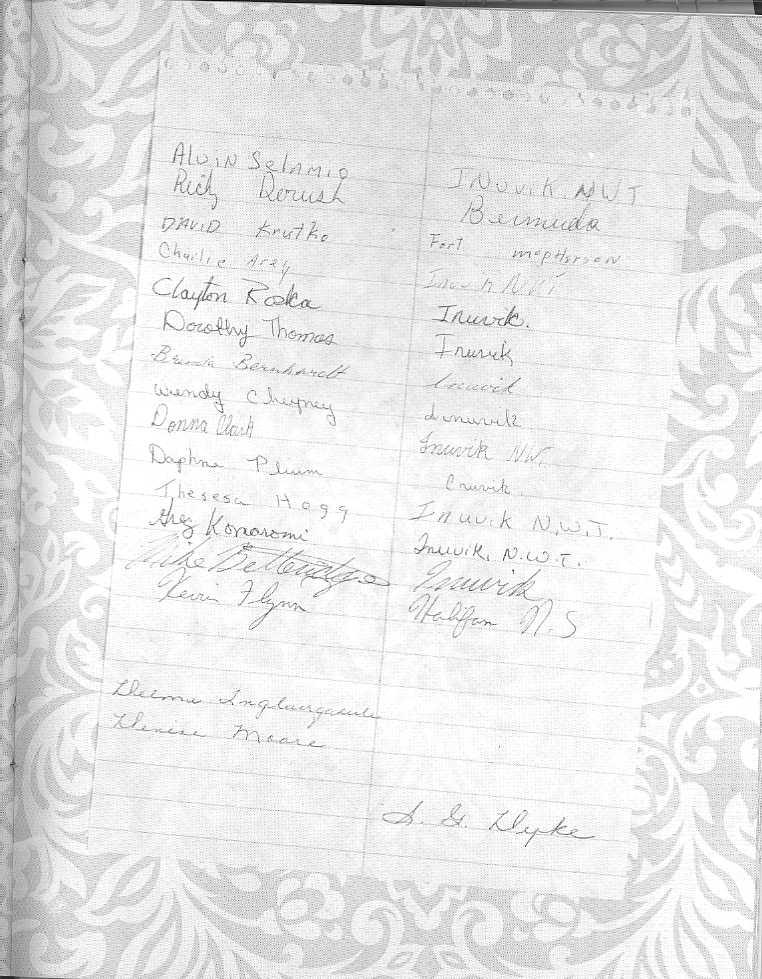 Alvin Selamio INUVIK. NWT
Rick Bermuda
DAVID Krutko Fort mcpherson
Charlie Inuvik NWT
Clayton Roska Inuvik.
Dorothy Thomas Inuvik
Brenda Bernhardt Inuvik
Wendy Cheyney Inuvik
Donna Clark Inuvik NW.
Daphne Plum Inuvik.
Theresa Hagg Inuvik N.W.T.
Greg Konoromi Inuvik, N.W.T.
Mike Inuvik
Kevin Flynn Halifax N.S
Delma
Denise Moore
S. G. Dyke